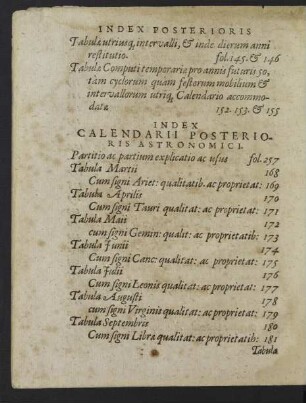 INDEX POSTERIORIS
Tabulæ utriusq, intervalli, & inde dierum anni
restitutio. fol. 145. & 146
Tabulæ Computi temporariæ pro annis futuris 50,
tàm cyclorum quàm festorum mobilium &
intervallorum utriq, Calendario accommo-
datæ 152. 153. & 155
INDEX
CALENDARII POSTERIO-
RIS ASTRONOMICI.
Partitio ac partium explicatio ac usus fol. 257
Tabula Martii 168
Cum signi Ariet: qualitatib. ac proprietat: 169
Tabula Aprilis 170
Cum signi Tauri qualitat: ac proprietat: 171
Tabula Maii 172
cum signi Gemin: qualit: ac proprietatib: 173
Tabula Junii 174
Cum signi Canc: qualitat: ac proprietat: 175
Tabula Julii 176
Cum signi Leonis qualitat: ac proprietat: 177
Tabula Augusti 178
cum signi Virginis qualitat: ac proprietat: 179
Tabula Septembris 180
Cum signi Libræ qualitat: ac proprietatib: 181
Tabula